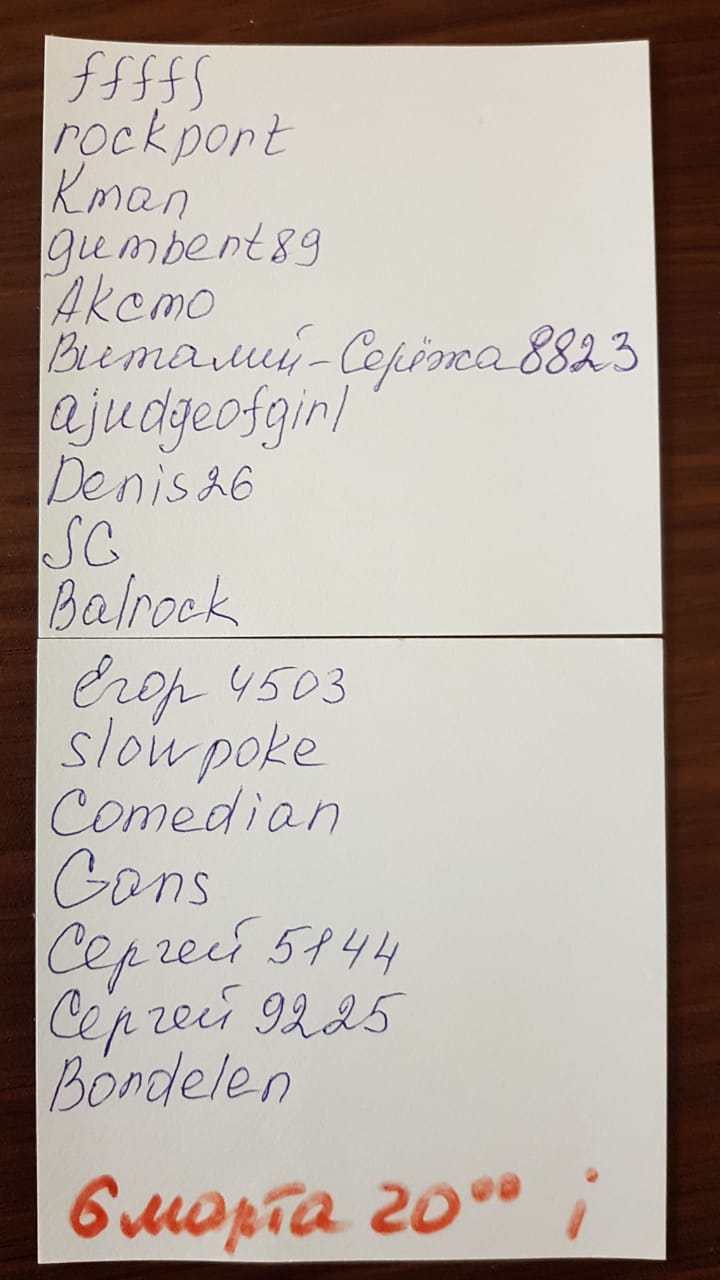 fffff
rockport
Kman
gumbert89
Аксто
Виталий-Серёжа8823
ajudgeofgirl
Denis26
SG
Balrock
Егор 4503
slowpoke
Comedian
Gans
Сергей 5144
Сергей 9225
Bordelen
6 марта 20⁰⁰ i